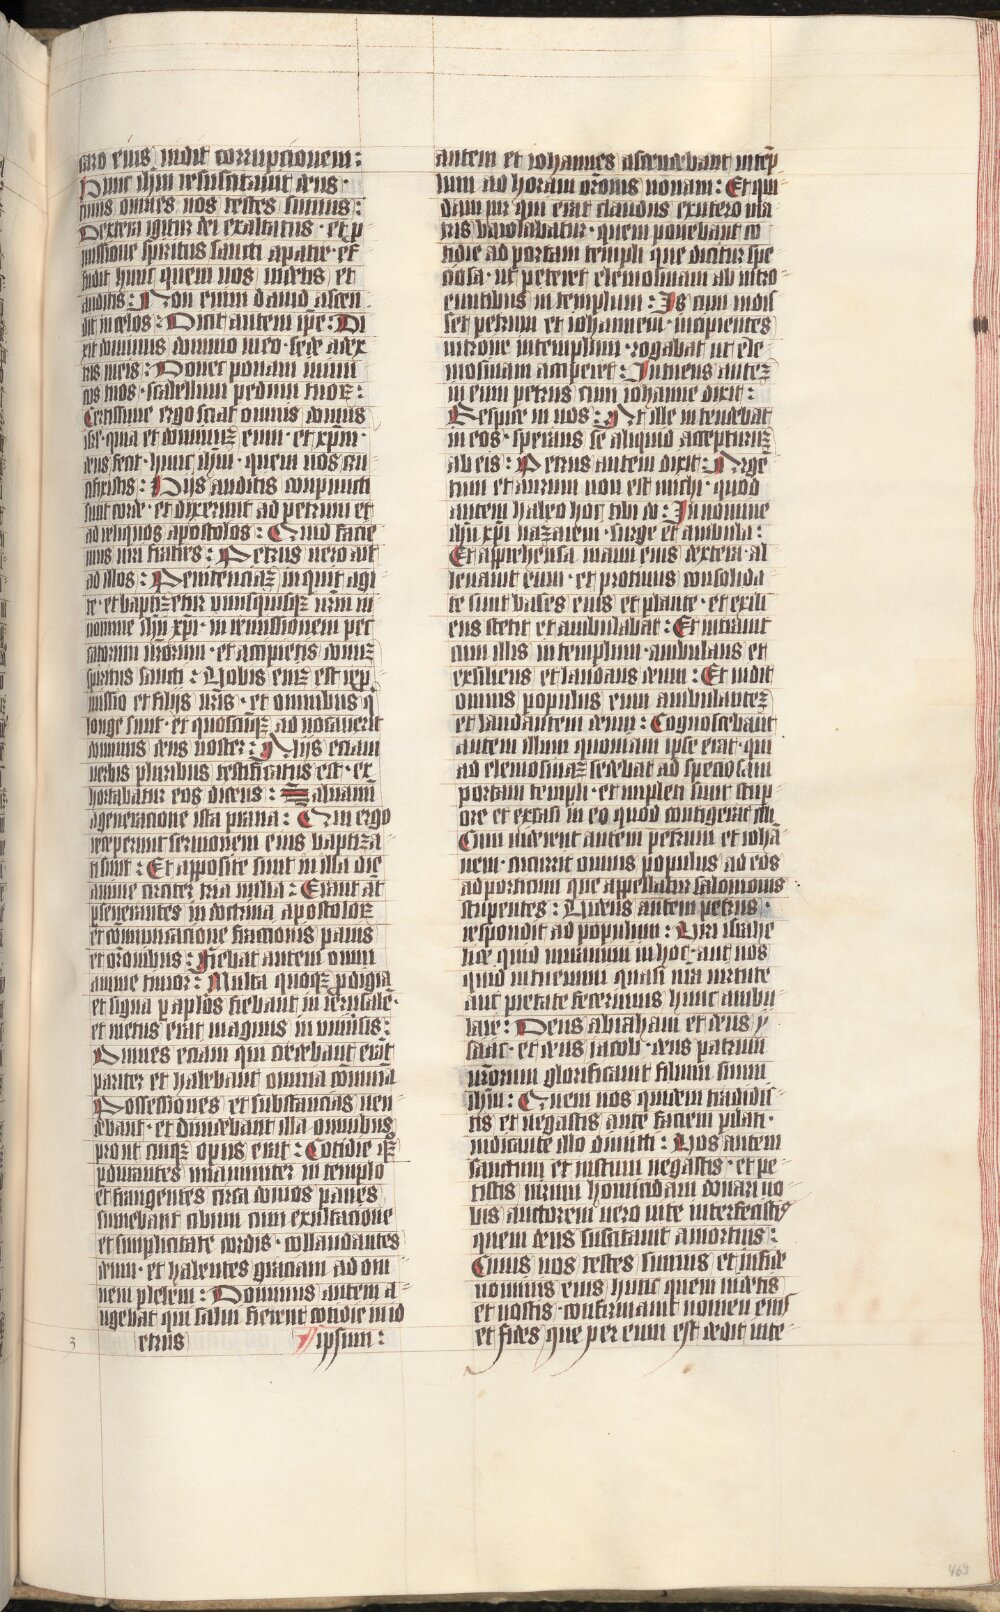 caro eius uidit corrupcionem:
Hunc ihm̄ resuscitauit deus·
cuius omnes nos testes sumus:
Dextera igitur dei exaltatus · et p
missione spiritus sancti a patre · ef
fudit hunc quem uos uidetis et
auditis: Non enim dauid ascen
dit in celos: Dicit autem ip̄e: Di
xit dominus domino meo · sede a dex
tris meis: Donec ponam inimi
cos tuos · scabellum pedum tuoꝝ:
Certissime ergo sciat omnis domus
isrł · quia et dominuꝫ eum · et xp̄m·
deus fecit · hunc ihm̄ · quem uos cru
cifixistis: Hijs auditis conpuncti
sunt corde · et dixerunt ad petrum et
ad reliquos apostolos: Quid facie
mus uiri fratres: Petrus uero ait
ad illos: Penitenciaꝫ inquit agi
te · et baptizetur unusquisqꝫ ur̄m in
nomine ihū xp̄i · in remissionem pec
catorum ur̄orum · et accipietis donuꝫ
spiritus sancti: Uobis eniꝫ est rep
missio et filijs ur̄is · et omnibus q
longe sunt · et quoscumqꝫ aduocauerit
dominus deus noster: Alijs eciam
uerbis pluribus testificatus est · ex
hortabatur eos dicens: Saluamī
a generacione ista praua: Qui ergo
receperunt sermonem eius baptiza
ti sunt: Et apposite sunt in illa die
anime circiter tria milia: Erant aūt
pseuerantes in doctrina apostoloꝝ
et comunicacione fractionis panis
et or̄onibus: Fiebat autem omni
anime timor: Multa quoqꝫ pdigia
et signa p ap̄los fiebant in ierusalē·
et metus erat magnus in uniūsis:
Omnes eciam qui credebant erāt
pariter et habebant omnia cōmuīa
Possessiones et substancias uen
debant · et diuidebant illa omnibus
prout cuiqꝫ opus erat: Cotidie qꝫ
pdurantes unanimiter in templo
et frangentes circa domos panes
sumebant cibum cum exultacione
et simplicitate cordis · collaudantes
deum · et habentes graciam ad om
nem plebem: Dominus autem a
ugebat qui salui fierent cotidie in id
3 etrus ipsum:
autem et iohannes ascendebant in tēp
lum ad horam or̄onis nonam: Et qui
dam uir qui erat claudus ex utero ma
tris baiolabatur · quem ponebant co
tidie ad portam templi que dicitur spe
ciosa · ut peteret elemosinam ab intro
euntibus in templum: Is cum uidis
set petrum et iohannem · incipientes
introire in templum · rogabat ut ele
mosinam acciperet: Intuens auteꝫ
in eum petrus cum iohanne dixit:
Respice in nos: At ille intendebat
in eos · sperans se aliquid accepturuꝫ
ab eis: Petrus autem dixit: Argē
tum et aurum non est michi · quod
autem habeo hoc tibi do: In nomine
ihū xp̄i nazareni · surge et ambula:
Et apprehensa manu eius dextera · al
leuauit eum · et protinus consolida
te sunt bases eius et plante · et exili
ens stetit et ambulabat: Et intrauit
cum illis in templum · ambulans et
exsiliens et laudans deum: Et uidit
omnis populus eum ambulanteꝫ
et laudantem deum: Cognoscebant
autem illum quoniam ipse erat · qui
ad elemosinaꝫ sedebat ad speciosam
portam templi · et impleti sunt stup
ore et extasi in eo quod contigerat illi
Cum uiderent autem petrum et iohā
nem · cucurrit omnis populus ad eos
ad porticum que appellatur salomonis
stupentes: Uidens autem petrus ·
respondit ad populum: Uiri israhe
lite quid miramini in hoc · aut nos
quid intuemini quasi nr̄a uirtute
aut pietate fecerimus hunc ambu
lare: Deus abraham et deus y
saac · et deus iacob · deus patrum
nr̄orum glorificauit filium suum
ihm̄: Quem uos quidem tradidis
tis et negastis ante faciem pilati ·
iudicante illo dimitti: Uos autem
sanctum et iustum negastis · et pe
tistis uirum homicidam donari uo
bis auctorem uero uite interfecistis
quem deus suscitauit a mortuis:
Cuius nos testes sumus et in fide
nominis eius hunc quem uidetis
et nostis · confirmauit nomen eius
et fides que per eum est dedit inte
469